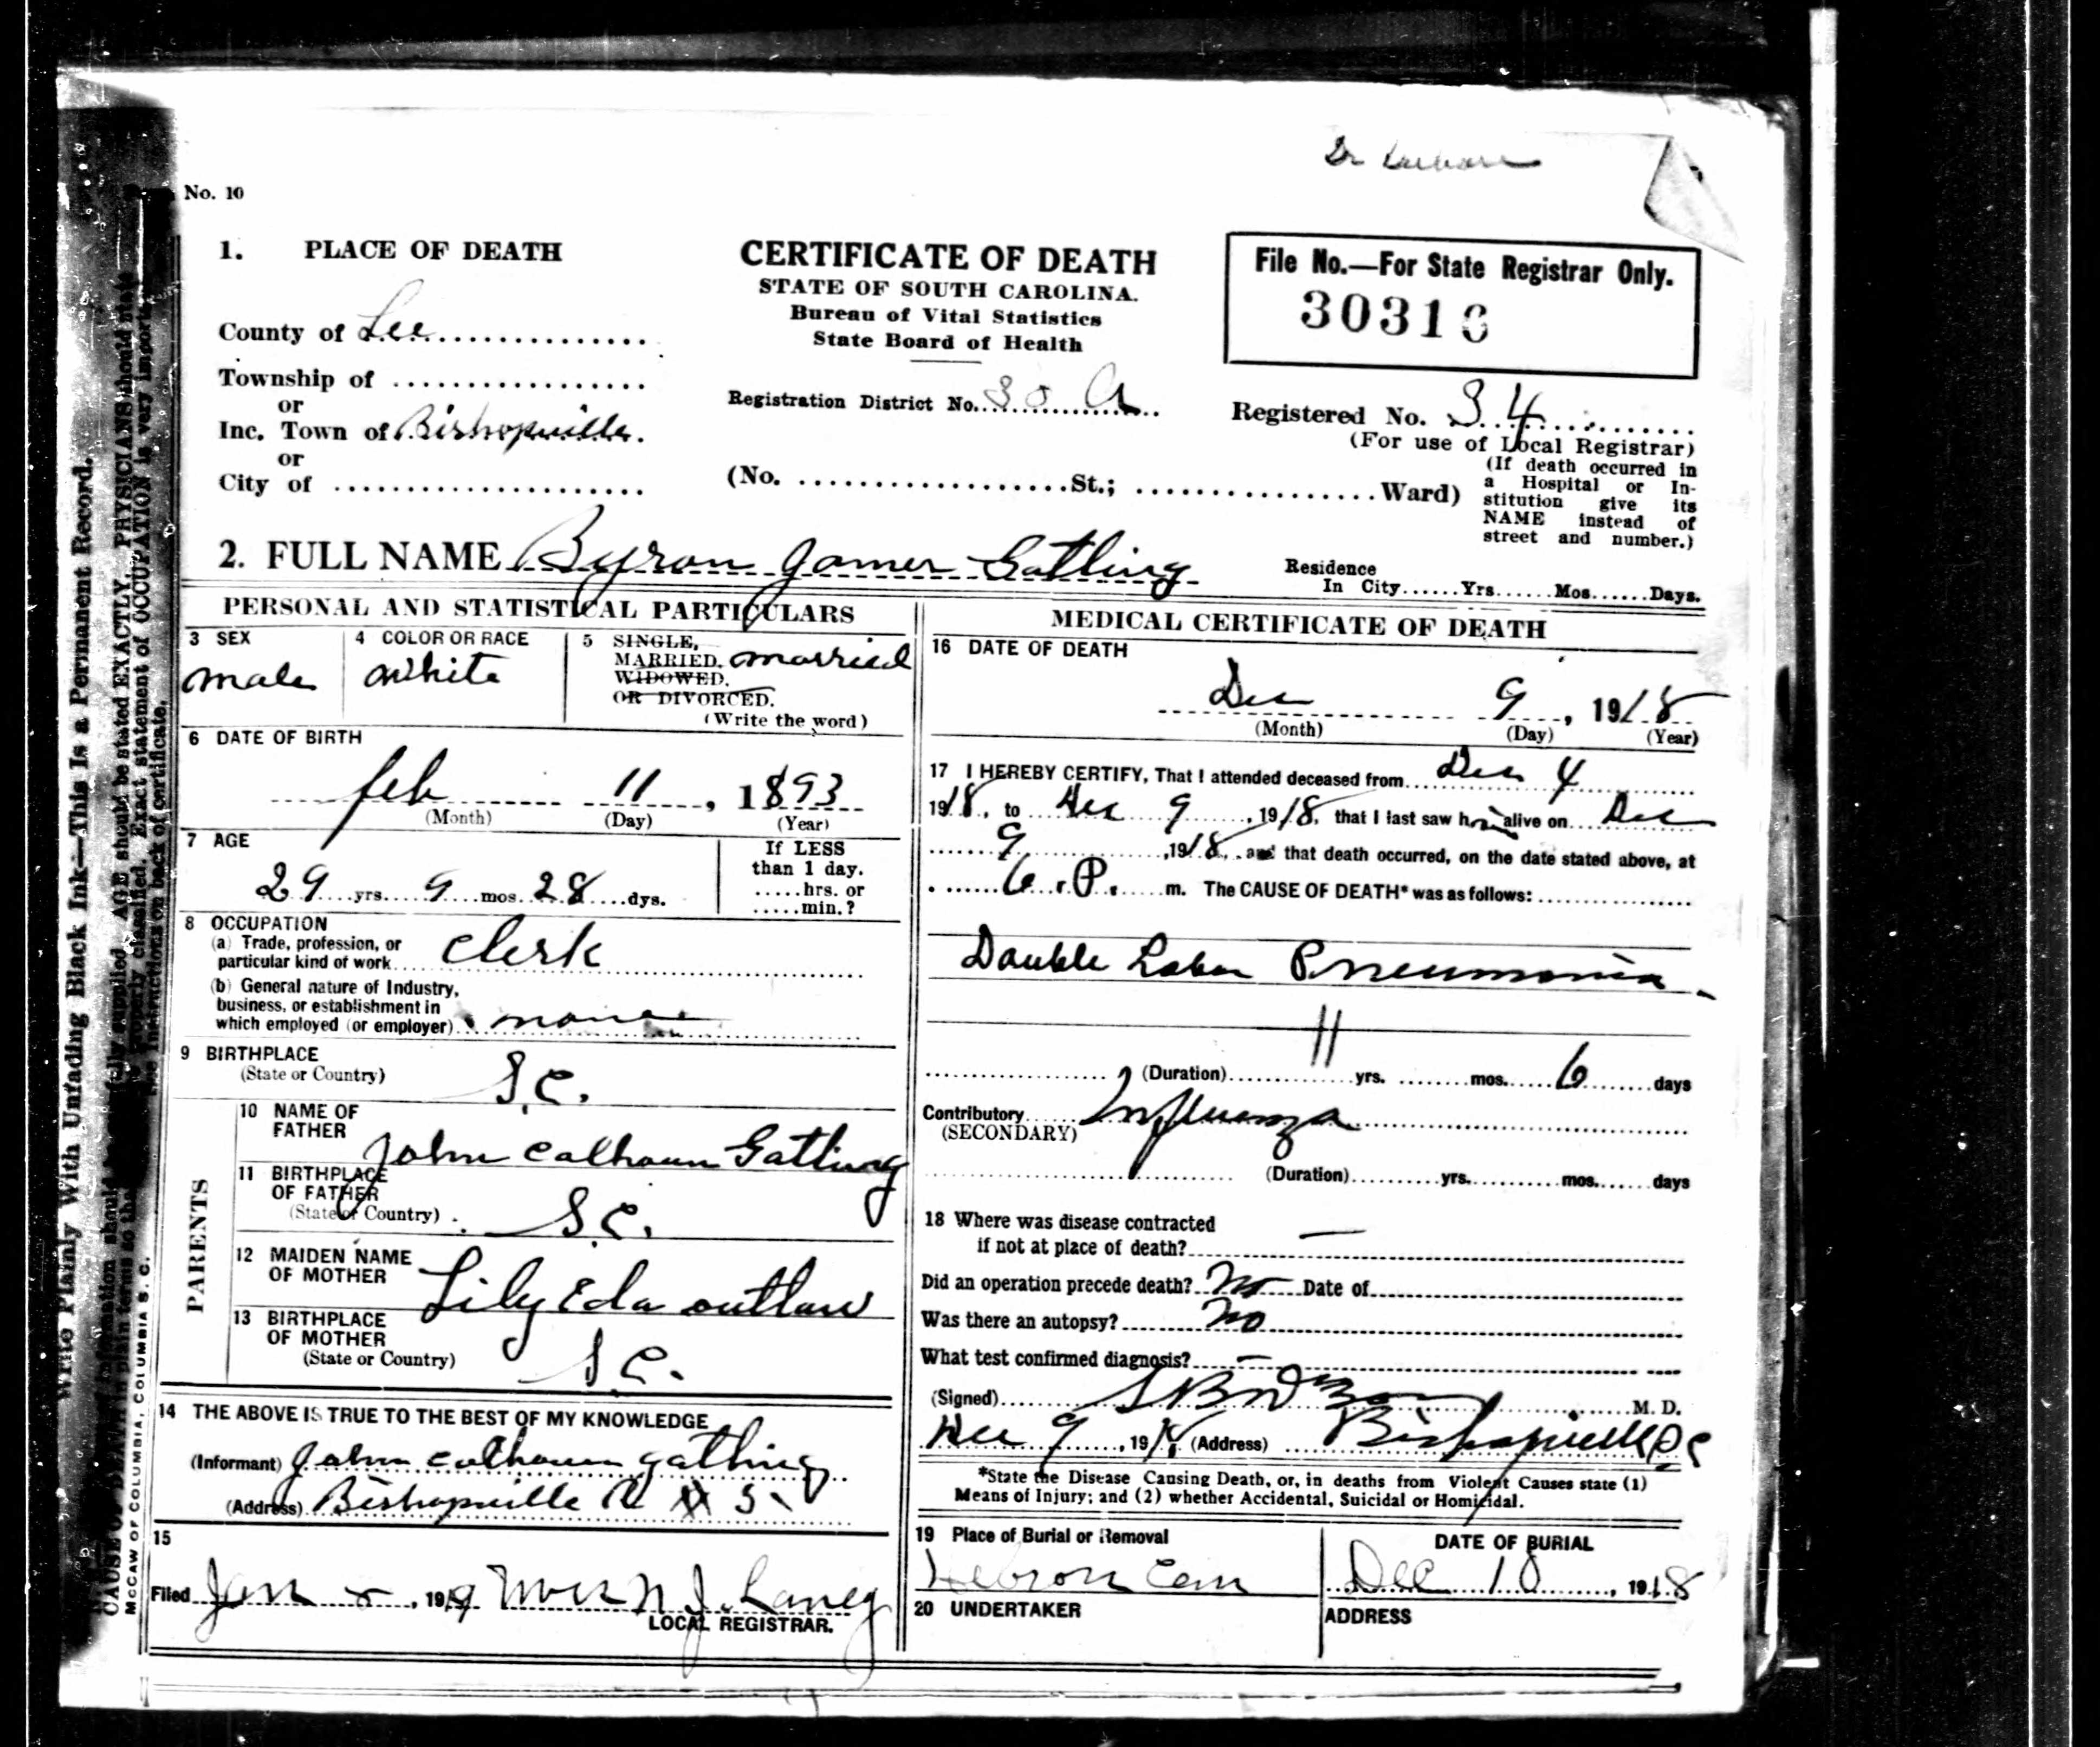 No. 10
1. PLACE OF DEATH
County of Lee
Township of
or
Inc. Town of Bishopville
or
City of
CERTIFICATE OF DEATH
STATE OF SOUTH CAROLINA.
Bureau of Vital Statistics
State Board of Health
Registration District No. 30 A
File No.—For State Registrar Only.
30316
Registered No. 34
(For use of Local Registrar)
(No. St.; Ward)
(If death occurred in
a Hospital or In-
stitution give its
NAME instead of
street and number.)
2. FULL NAME Byron Gatling
Residence
In City Yrs Mos Days.
PERSONAL AND STATISTICAL PARTICULARS
3 SEX
male
4 COLOR OR RACE
White
5 SINGLE,
MARRIED, married
WIDOWED.
OR DIVORCED.
(Write the word)
6 DATE OF BIRTH
feb 11, 1893
(Month) (Day) (Year)
7 AGE
29 yrs. 9 mos. 28 dys.
If LESS
than 1 day.
hrs. or
min.?
8 OCCUPATION
(a) Trade, profession, or
particular kind of work Clerk
(b) General nature of Industry,
business, or establishment in
which employed (or employer)
9 BIRTHPLACE
(State or Country) S.C.
PARENTS
10 NAME OF
FATHER John Calhoun Gatling
11 BIRTHPLACE
OF FATHER
(State or Country) S.C.
12 MAIDEN NAME
OF MOTHER Lily Eda outlaw
13 BIRTHPLACE
OF MOTHER
(State or Country) S.C.
14 THE ABOVE IS TRUE TO THE BEST OF MY KNOWLEDGE
(Informant) John Calhoun Gatling
(Address) Bishopville
15
Filed Jan 1919 N J. Laney
LOCAL REGISTRAR.
MEDICAL CERTIFICATE OF DEATH
16 DATE OF DEATH
Dec 9, 1918
(Month) (Day) (Year)
17 I HEREBY CERTIFY, That I attended deceased from Dec 4
1918, to Dec 9, 1918, that I last saw him alive on Dec
9, 1918, and that death occurred, on the date stated above, at
6. P. m. The CAUSE OF DEATH* was as follows:
Double Lobar Pneumonia
(Duration) yrs. mos. 6 days
Contributory Influenza
(SECONDARY)
(Duration) yrs. mos. days
18 Where was disease contracted
if not at place of death? —
Did an operation precede death? No Date of
Was there an autopsy? No
What test confirmed diagnosis? —
(Signed) M. D.
Dec 9, 1918 (Address) Bishopville SC
*State the Disease Causing Death, or, in deaths from Violent Causes state (1)
Means of Injury; and (2) whether Accidental, Suicidal or Homicidal.
19 Place of Burial or Removal
Hebron Cem
DATE OF BURIAL
Dec 10, 1918
20 UNDERTAKER
ADDRESS
Write Plainly With Unfading Black Ink—This Is a Permanent Record.
McCAW OF COLUMBIA, COLUMBIA S. C.